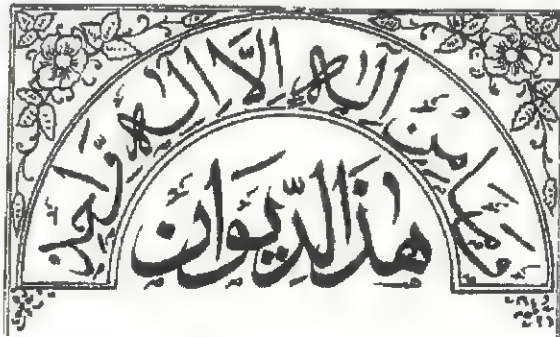 وَمَا مِنْ اِلٰهٍ اِلَّا اِلٰهٌ وَّاحِدٌ
هٰذَالدِّيْوَانِ